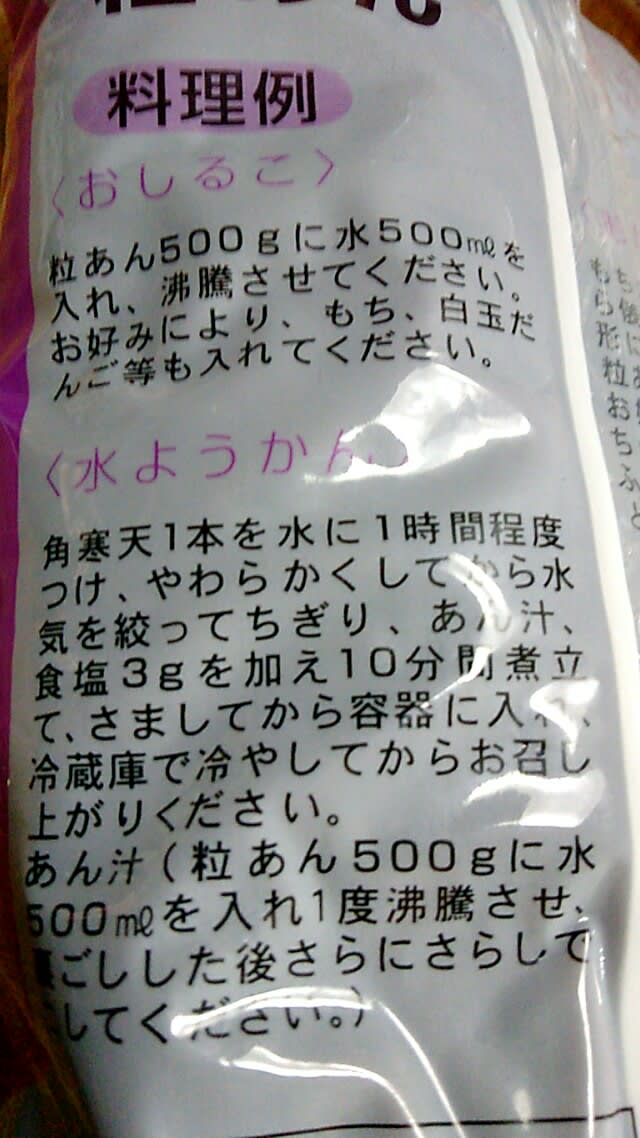 料理例
〈おしるこ〉
粒あん500gに水500mlを
入れ、沸騰させてください。
お好みにより、もち、白玉だ
んご等も入れてください。
〈水ようかん
角寒天1本を水に1時間程度
つけ、やわらかくしてから水
気を絞ってちぎり、あん汁、
食塩3gを加え10分間煮立
て、さましてから容器に入れ、
冷蔵庫で冷やしてからお召し
上がりください。
あん汁(粒あん500gに水
500mlを入れ1度沸騰させ、
ごしした後さらにさらして
してください。)
もち
ら
形に
粒
お
ち
ふ
と